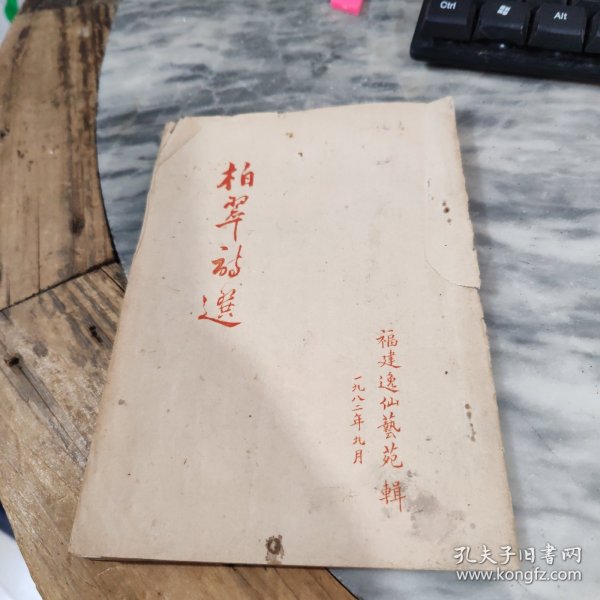 柏翠詩選
福建逸仙藝苑 輯
一九八二年九月
Ctrl
Alt
孔夫子旧书网
www.kongfz.com